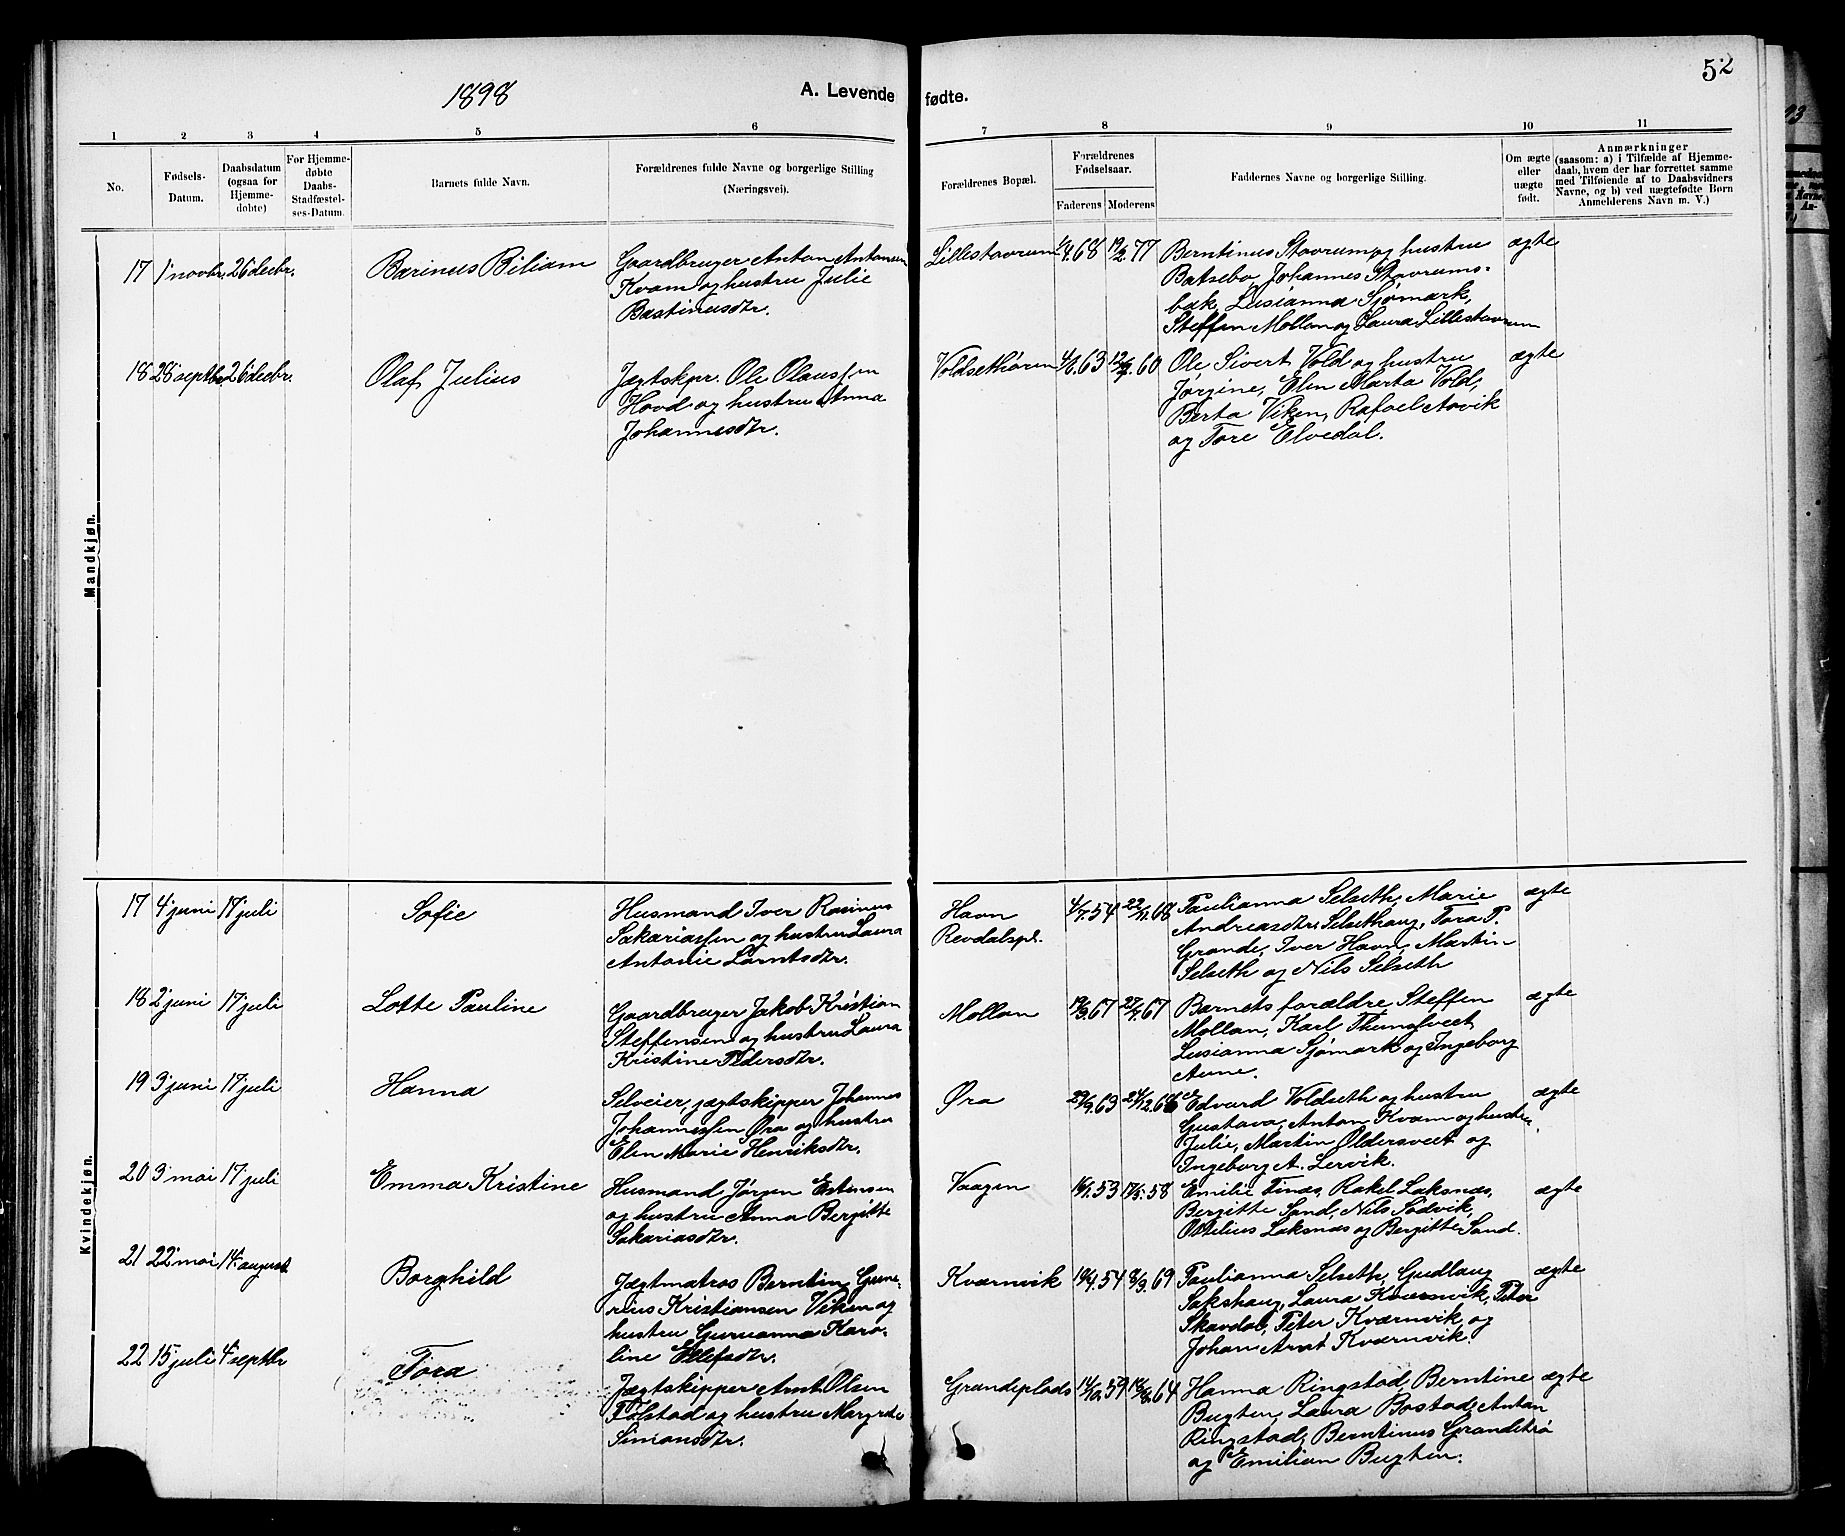 52
1898
A. Levende fødte.
1 2 3 4 5 6 7 8 9 10 11
No.
Fødsels-
Datum.
Daabsdatum
(ogsaa for
Hjemme-
døbte)
For Hjemme-
døbte
Daabs-
Stadfæstel-
ses-Datum.
Barnets fulde Navn.
Forældrenes fulde Navne og borgerlige Stilling
(Næringsvei).
Forældrenes Bopæl.
Forældrenes
Fødselsaar.
Faderens Moderens
Faddernes Navne og borgerlige Stilling.
Om ægte
eller
uægte
født.
Anmærkninger
(saasom: a) i Tilfælde af Hjemme-
daab, hvem der har forrettet samme
med Tilføiende af to Daabsvidners
Navne, og b) ved uægtefødte Børn
Anmelderens Navn m. V.)
Mandkjøn.
17 1' novbr. 26' decbr. Barinus Biliam
Gaardbruger Anton Antonsen
Kvam og hustru Julie
Bastinusdtr.
Lillestavrum 68 77
Berntinus Stavrum og hustru
Batseba, Johannes Stavrums-
bak, Lusianna Sjømark,
Steffen Mollan og Laura Lillestavrum
ægte
18 28' septbr. 26' decbr. Olaf Julius
Jægtskpr. Ole Olaussen
Hovd og hustru Anna
Johannesdtr.
Voldsethøren 63 60
Ole Sivert Vold og hustru
Jørgine, Elen Marta Vold,
Berta Viken, Rafael Aavik
og Tore Elvedal.
ægte
Kvindekjøn.
17 4' juni 17' juli Sofie
Husmand Iver Rasinus
Sakariassen og hustru Laura
Antonie Larntsdtr.
Havn
Revdalspl.
4/7.54 22/11.68
Paulianna Selseth, Marie
Andreasdtr. Selsethaug, Tora P.
Grande, Iver Havn, Martin
Selseth og Nils Selseth
ægte
18 2' juni 17' juli Lotte Pauline
Gaardbruger Jakob Kristian
Steffensen og hustru Laura
Kristine Pedersdtr.
Mollan 67 67
Barnets forældre Steffen
Mollan, Karl Thungtveet
Lusianna Sjømark og Ingeborg
Aune.
ægte
19 3' juni 17' juli Hanna
Selveier, jægtskipper Johannes
Johannessen Øra og hustru
Elen Marie Henriksdtr.
Øra 29/9.63 24/12.66
Edvard Voldseth og hustru
Gustava, Anton Kvam og hustru
Julie, Martin Oldersveet og
Ingeborg A. Lervik.
ægte
20 3' mai 17' juli Emma Kristine
Husmand Jørgen Estensen
og hustru Anna Bergitte
Sakariasdtr.
Vaagen 53 58
Emilie Finås, Rakel Laksnæs,
Bergitte Sand, Nils Sødvik,
Ottilius Laksnæs og Bergitte Sand.
ægte
21 22' mai 14' august Borghild
Jægtmatros Berntin Gune-
rius Kristiansen Viken og
hustru Gurianna Karo-
line Ellefsdtr.
Kværnvik 54 8/3.69
Paulianna Selseth, Gudlaug
Sakshaug, Laura Kværnvik, Peter
Skavdal, Peter Kværnvik og
Johan Arnt Kværnvik.
ægte
22 15' juli 4' septbr Tora
Jægtskipper Arnt Olsen
Følstad og hustru Margrete
Simonsdtr.
Grandeplads 14/10.59 64
Hanna Ringstad, Berntine
Bugten, Laura Bostad, Anton
Ringstad, Berntinus Grandetrø
og Emilian Bugten.
ægte